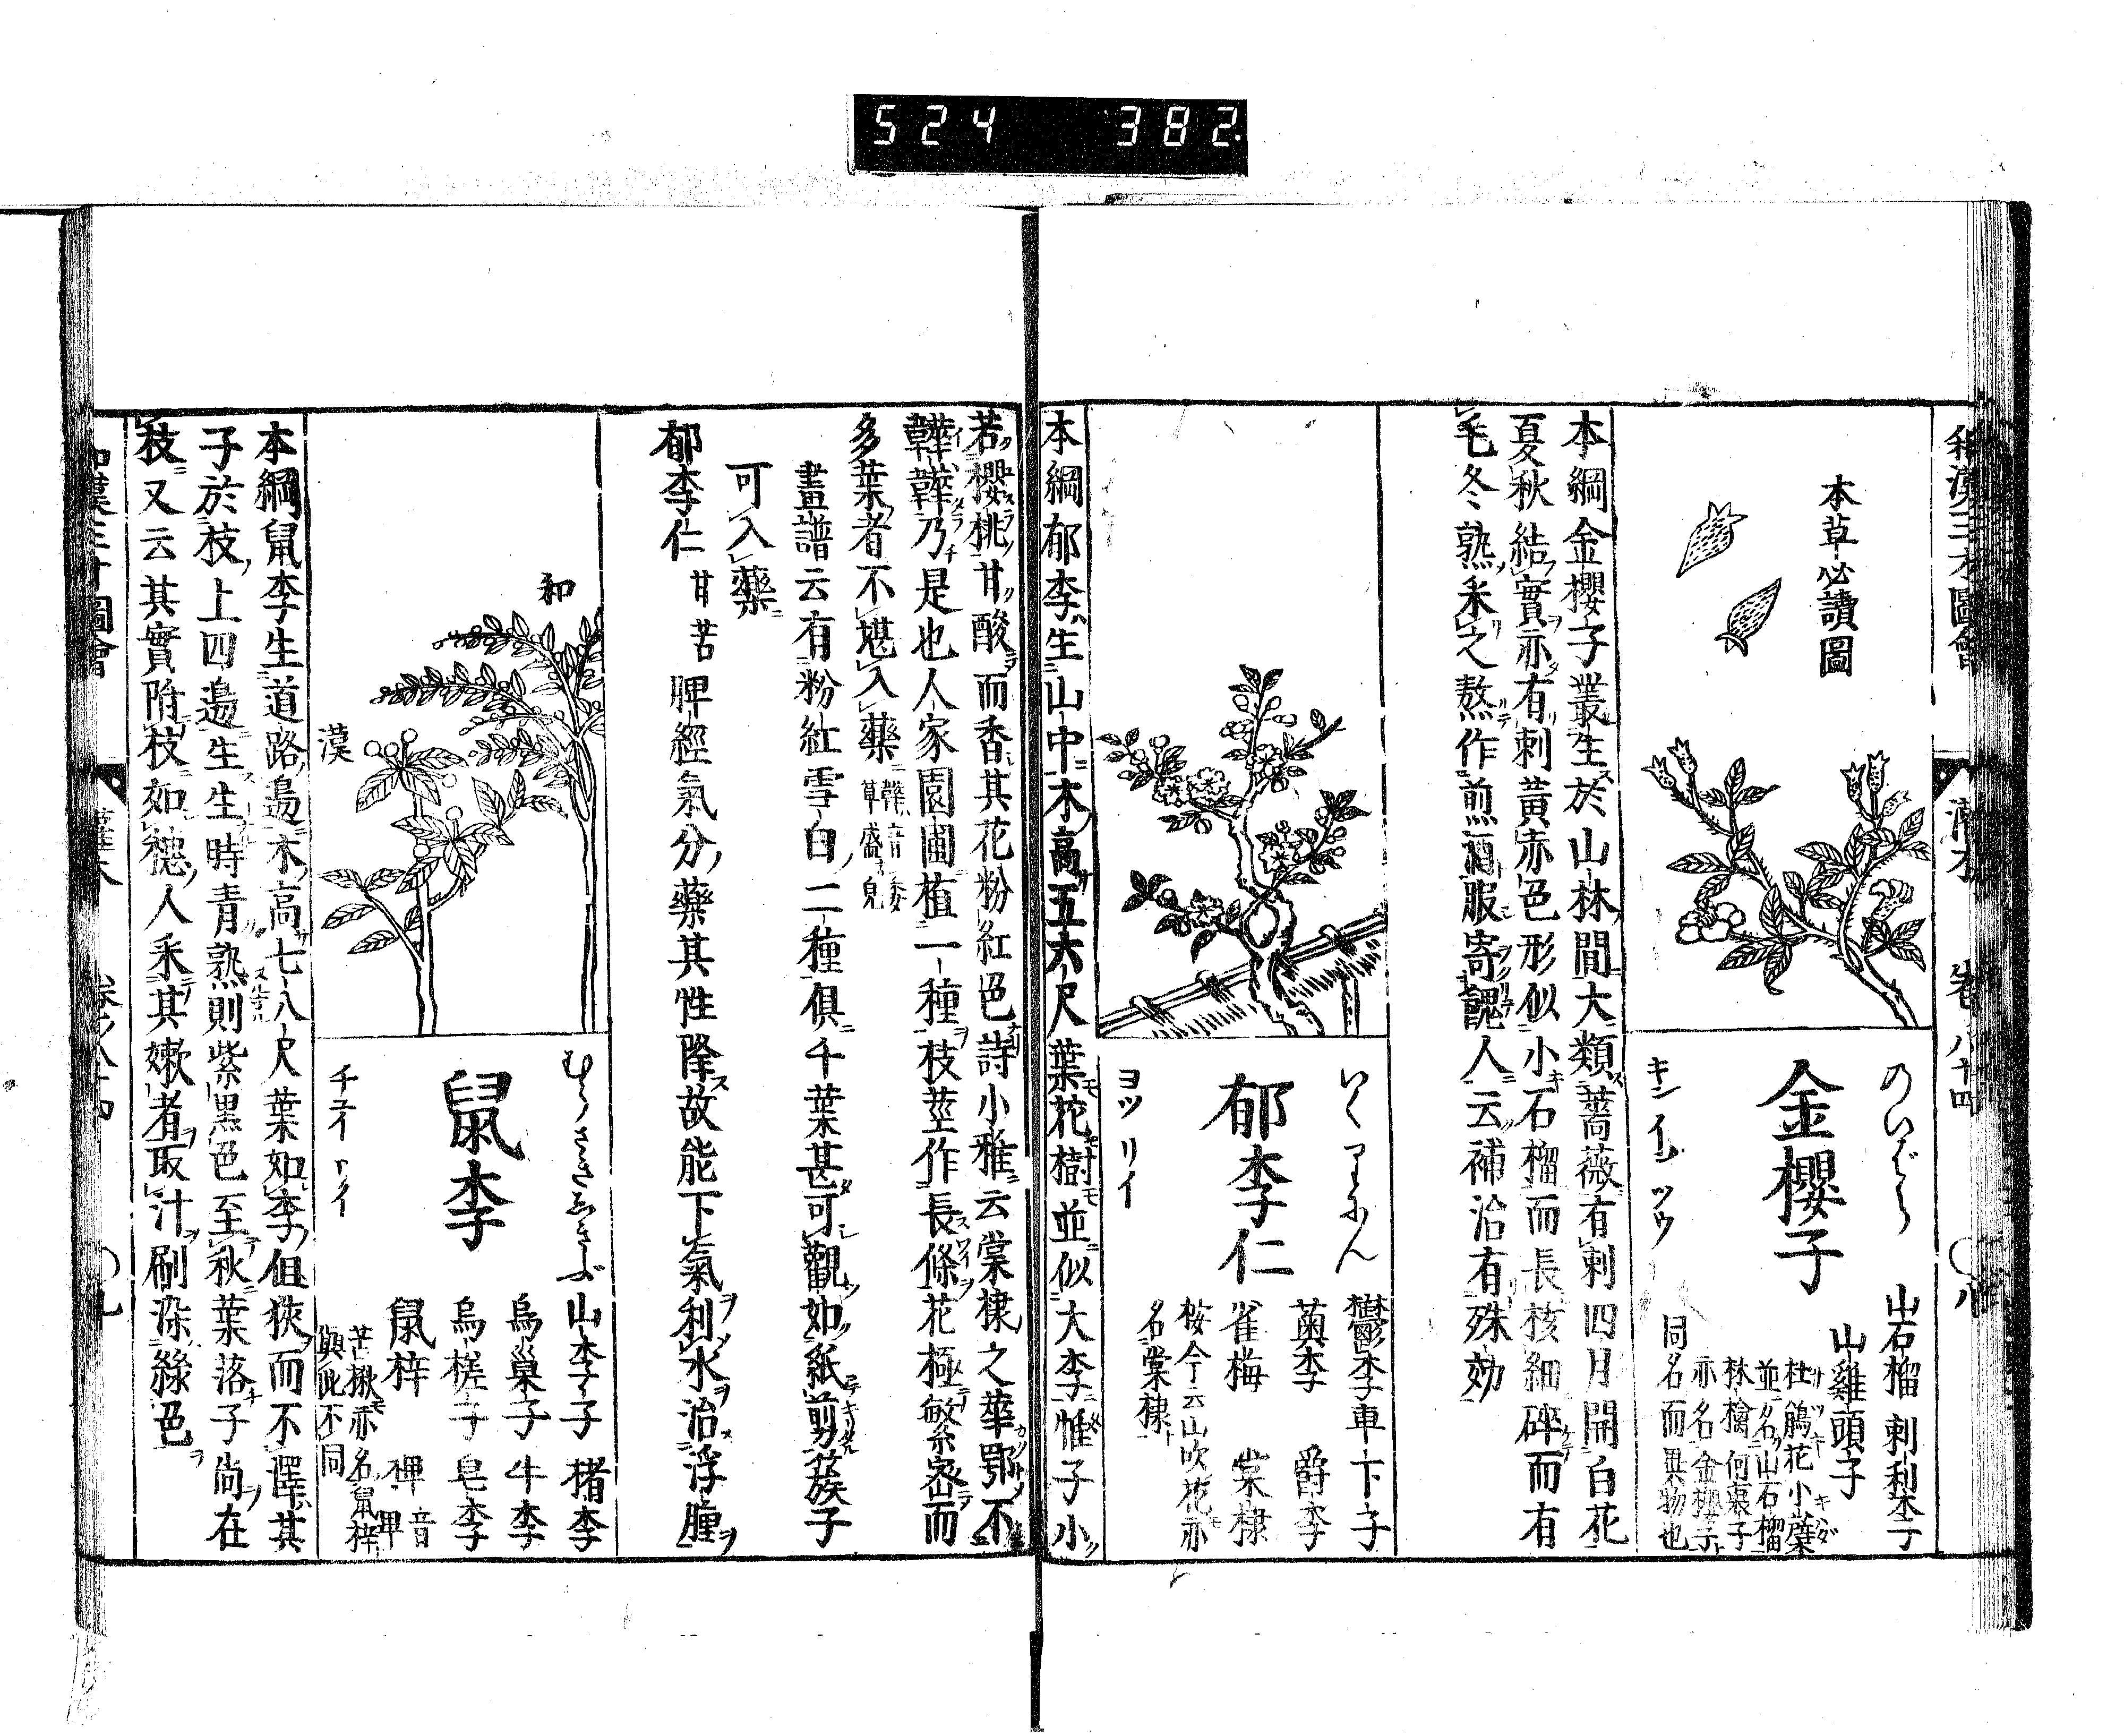 524 382
和漢三才圖會 灌木 卷八十四 ○八
本草必讀圖
のいばら
金櫻子
キン イン ツウ
山石榴 刺梨子
山雞頭子
杜鵑花小蘗
並名山石榴
林檎何裹子
亦名金櫻子
同名而異物也
本綱金櫻子叢生於山林間大類薔薇有刺四月開白花
夏秋結實亦有刺黃赤色形似小石榴而長核細碎而有
毛冬熟采之熬作煎酒服寄餽人云補治有殊効
いくりにん
郁李仁
ヨツ リイ
鬱李 車下子
薁李 爵李
雀梅 棠棣
桉今云山吹花亦
名棠棣
本綱郁李生山中木高五六尺葉花樹並似大李惟子小
若櫻桃甘酸而香其花粉紅色詩小雅云棠棣之華鄂不
韡韡乃是也人家園圃植一種枝莖作長條花極繁密而
多葉者不堪入藥
韡音委
草盛皃
畫譜云有粉紅雪白二種俱千葉甚可觀如紙剪簇子
可入藥
郁李仁 甘苦 脾經氣分藥其性降故能下氣利水治浮腫
和
漢
むらさきしきぶ
鼠李
チユイ リイ
山李子 楮李
烏巢子 牛李
烏槎子 皂李
鼠梓 椑 音卑
苦楸亦名鼠梓
與此不同
本綱鼠李生道路邊木高七八尺葉如李但狹而不澤其
子於枝上四邊生生時青熟則紫黑色至秋葉落子尚在
枝又云其實附枝如穗人采其嫩者取汁刷染綠色
和漢三才圖會 灌木 卷之八十四 ○九